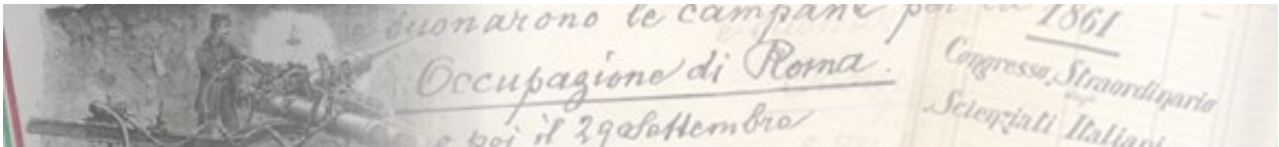 suonarono le campane per la
Occupazione di Roma.
e poi il 29 Settembre
1861
Congresso Straordinario
degli
Scienziati Italiani